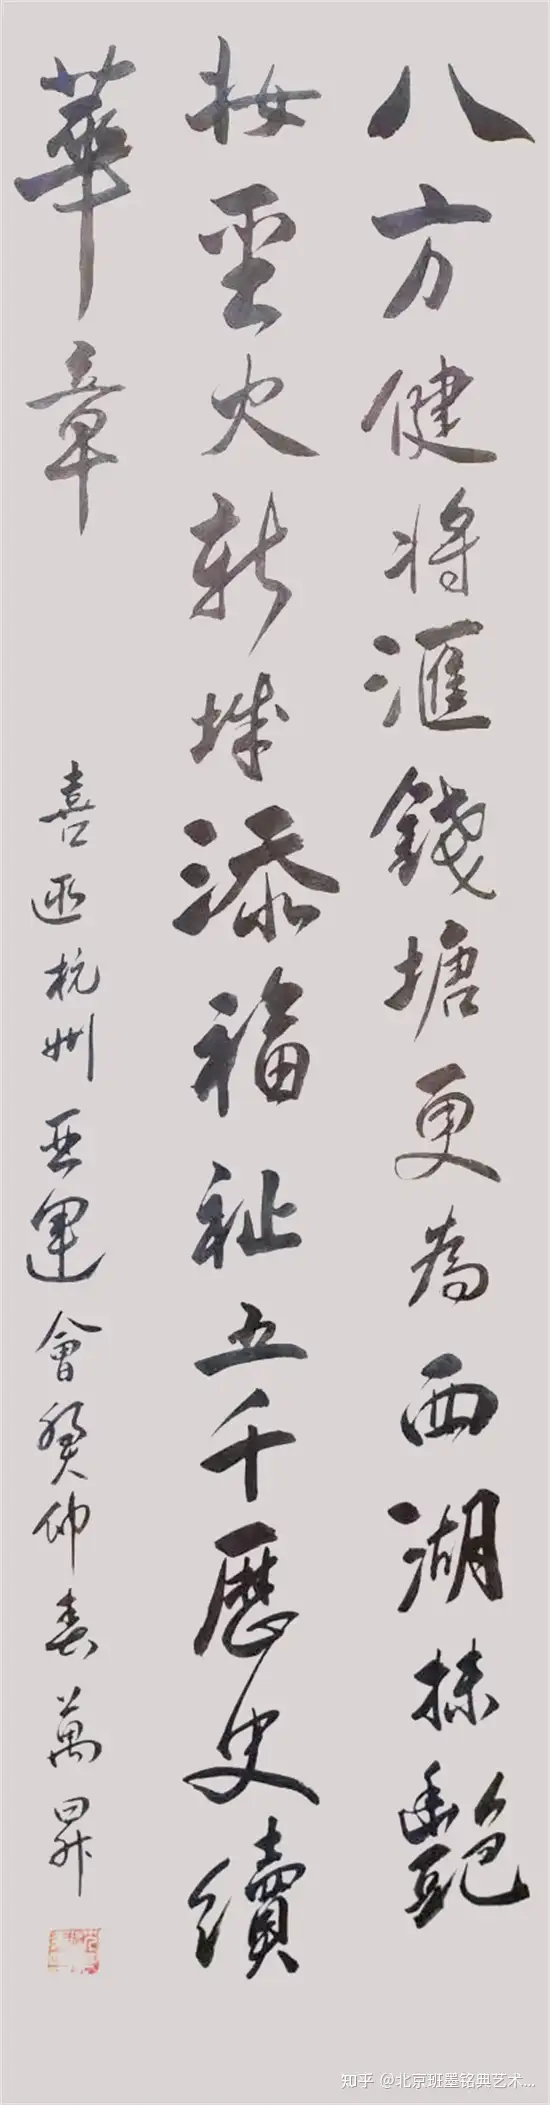 八方健將滙錢塘更為西湖抹艷
妝聖火新城添福祉五千歷史續
華章
喜迎杭州亞運會癸卯春萬昇
知乎 @北京班墨铭典艺术...